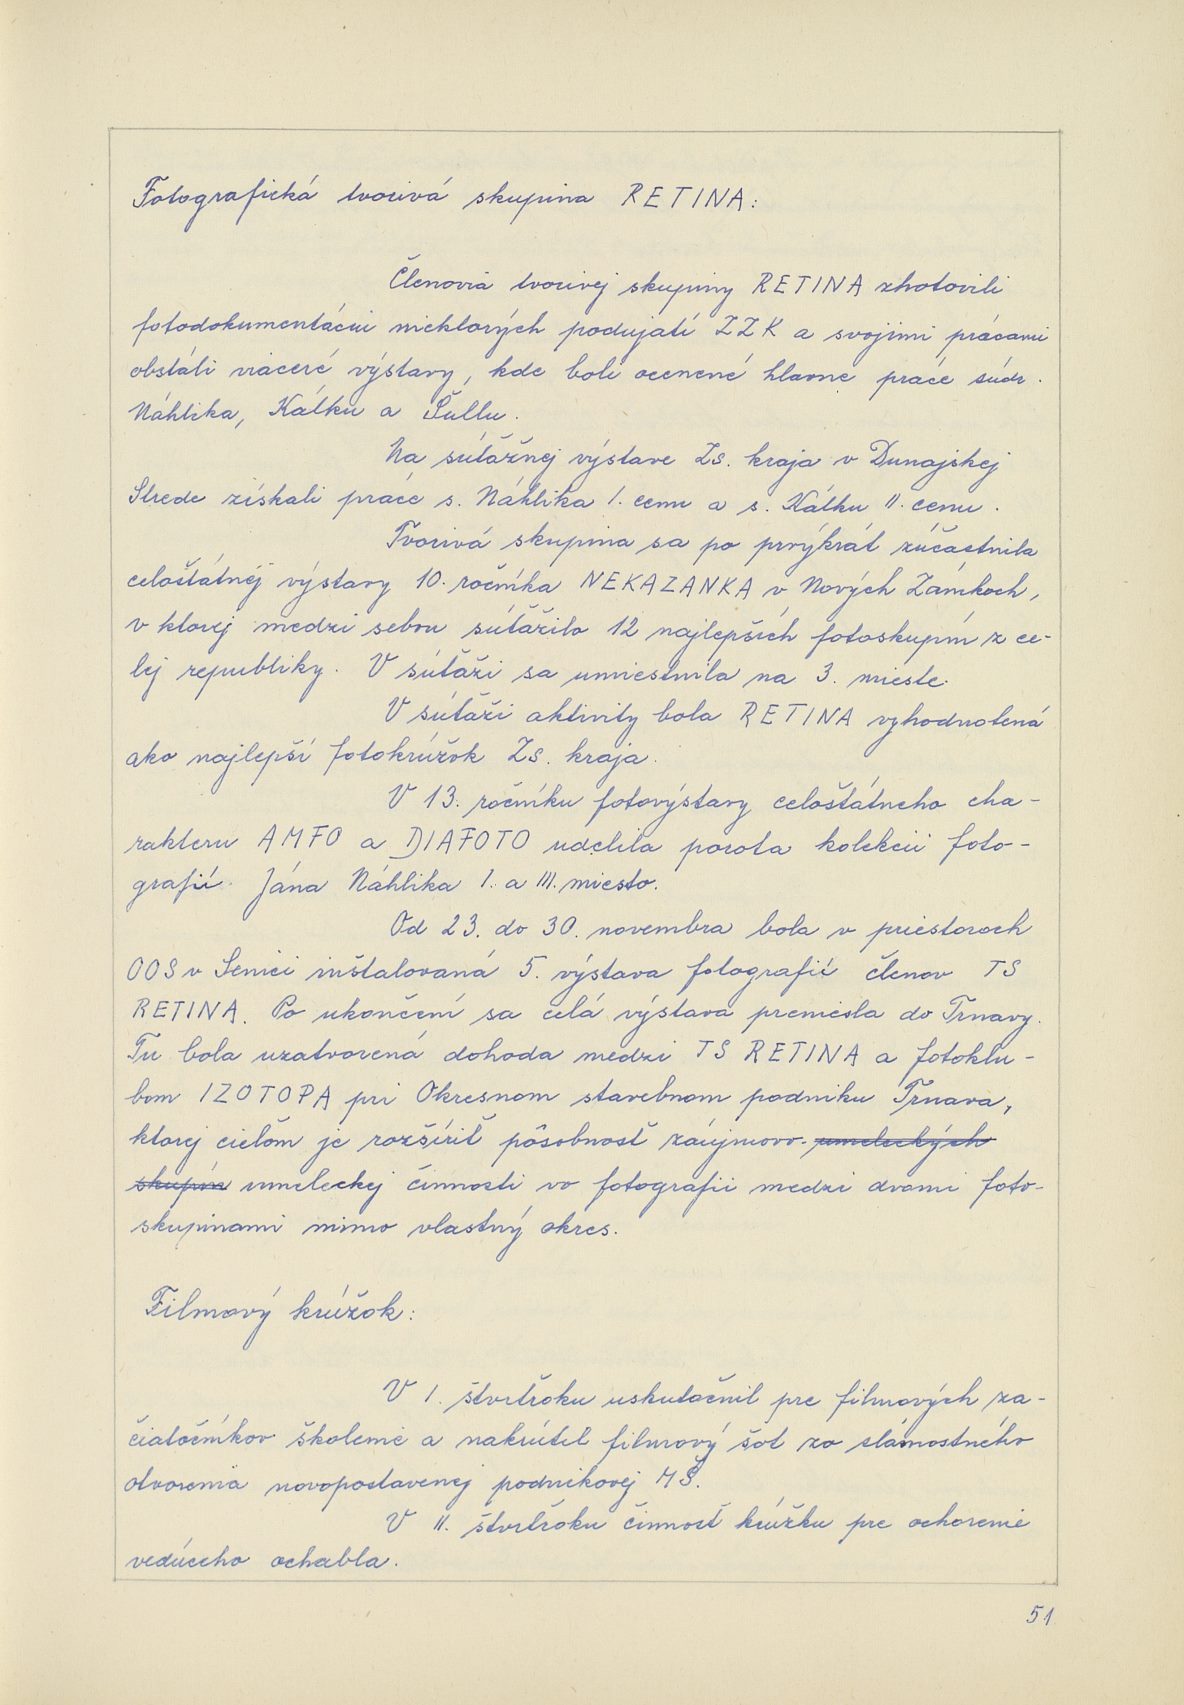 Fotografická tvorivá skupina RETINA:
Členovia tvorivej skupiny RETINA zhotovili
fotodokumentáciu niektorých podujatí ZZK a svojimi prácami
obstáli viaceré výstavy, kde boli ocenené hlavne práce súdr.
Náhlika, Kálku a Šullu.
Na súťažnej výstave Zs. kraja v Dunajskej
Strede získali práce s. Náhlika I. cenu a s. Kálku II. cenu.
Tvorivá skupina sa po prvýkrát zúčastnila
celoštátnej výstavy 10. ročníka NEKAZANKA v Nových Zámkoch,
v ktorej medzi sebou súťažilo 12 najlepších fotoskupín z ce-
lej republiky. V súťaži sa umiestnila na 3. mieste.
V súťaži aktivity bola RETINA vyhodnotená
ako najlepší fotokrúžok Zs. kraja.
V 13. ročníku fotovýstavy celoštátneho cha-
rakteru AMFO a DIAFOTO udelila porota kolekcii foto-
grafií Jána Náhlika I. a III. miesto.
Od 23. do 30. novembra bola v priestoroch
OOS v Senici inštalovaná 5. výstava fotografií členov TS
RETINA. Po ukončení sa celá výstava premiesla do Trnavy.
Tu bola uzatvorená dohoda medzi TS RETINA a fotoklu-
bom IZOTOPA pri Okresnom stavebnom podniku Trnava,
ktorej cieľom je rozšíriť pôsobnosť záujmovo-umeleckých
skupín umeleckej činnosti vo fotografii medzi dvomi foto-
skupinami mimo vlastný okres.
Filmový krúžok:
V I. štvrťroku uskutočnil pre filmových za-
čiatočníkov školenie a nakrútil filmový šot zo slávnostného
otvorenia novopostavenej podnikovej MŠ.
V II. štvrťroku činnosť krúžku pre ochorenie
vedúceho ochabla.
51